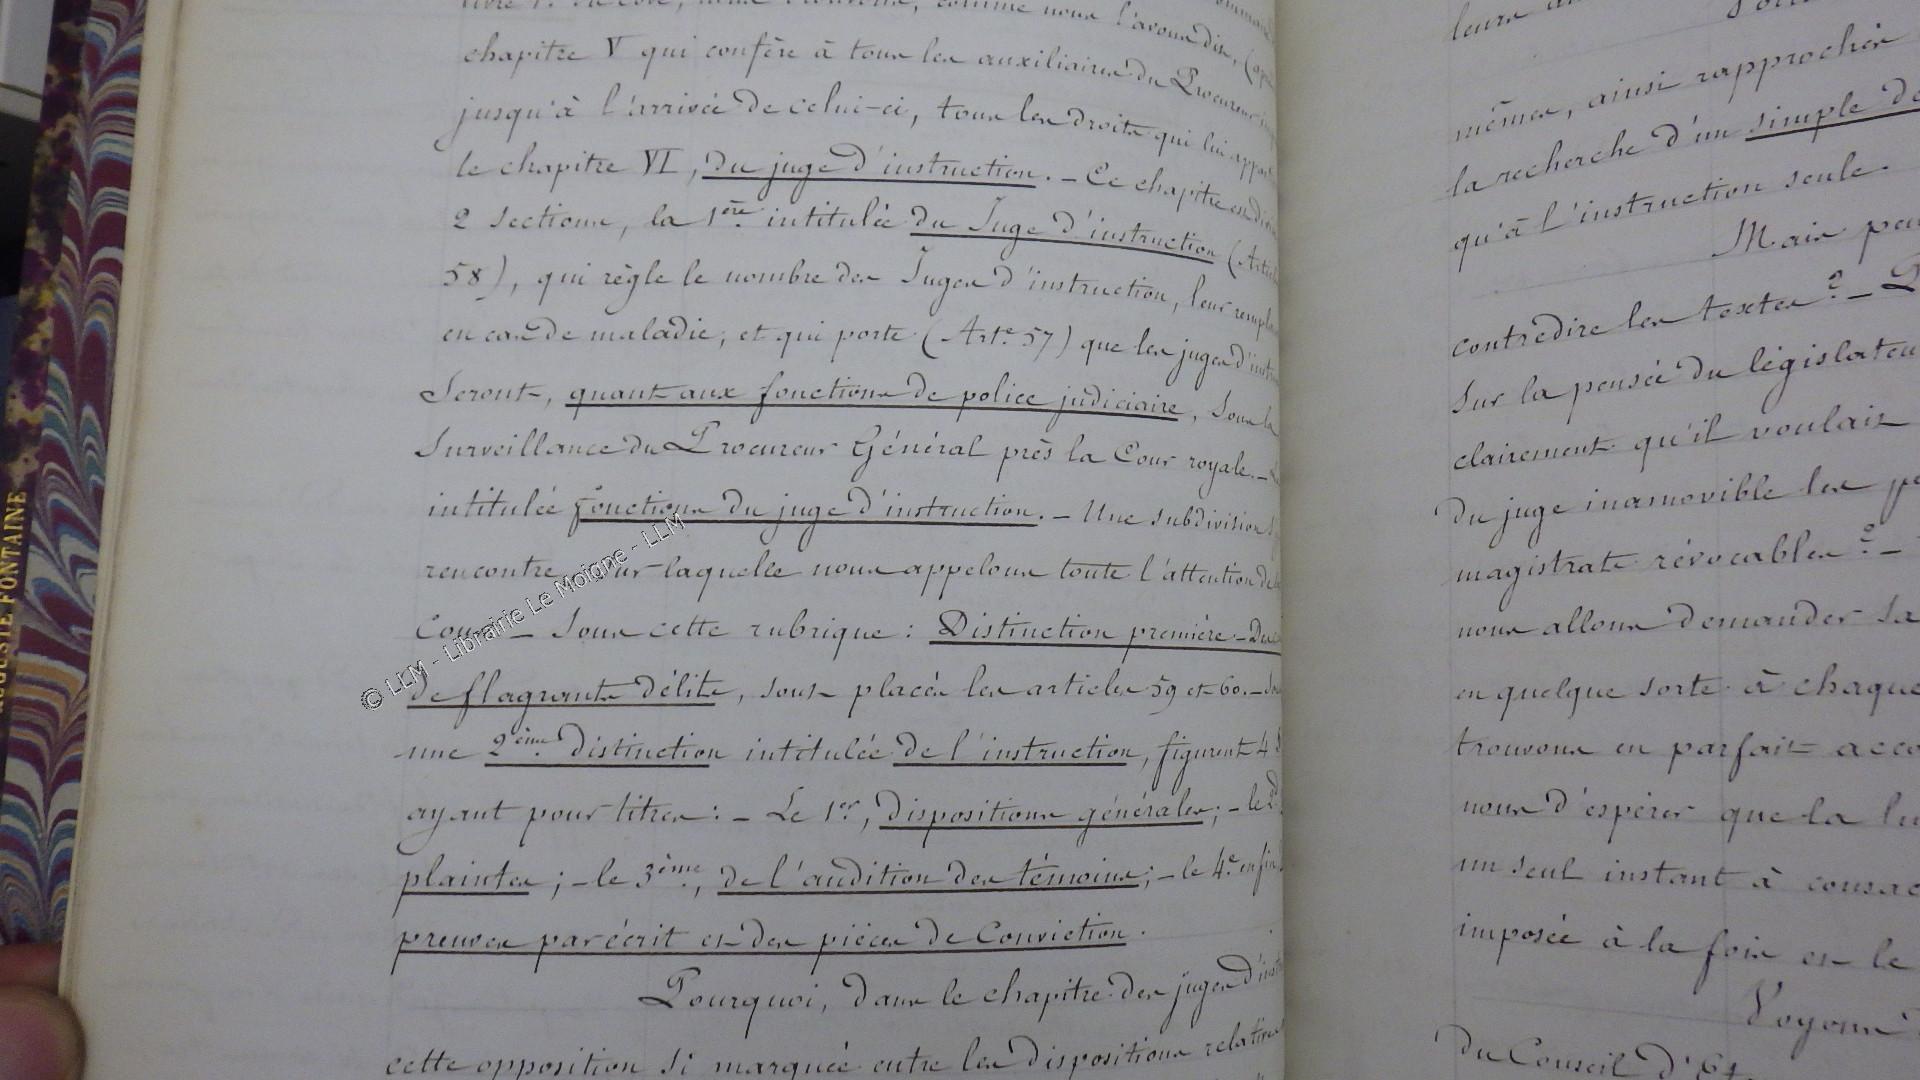 chapitre V qui confère à tous les auxiliaires du Procureur
jusqu'à l'arrivée de celui-ci, tous les droits qui lui
le chapitre VI, du juge d'instruction. - Ce chapitre est
2 sections, la 1ère intitulée du Juge d'instruction (
58), qui règle le nombre des Juges d'instruction, leur
en cas de maladie, et qui porte (Art.e 57) que les juges
seront, quant aux fonctions de police judiciaire, sous la
surveillance du Procureur Général près la Cour royale. -
intitulée fonctions du juge d'instruction. - Une subdivision
rencontre sur laquelle nous appelons toute l'attention de la
Cour. - Sous cette rubrique : Distinction première - Des
de flagrants délits, sont placés les articles 59 et 60. -
une 2ème distinction intitulée de l'instruction, figurent 4
ayant pour titres : - Le 1er, dispositions générales ; - le 2d
plaintes ; - le 3ème, de l'audition des témoins ; - le 4e enfin
preuves par écrit et des pièces de Conviction.
Pourquoi, dans le chapitre des juges
cette opposition si marquée entre les dispositions
leurs
mêmes, ainsi rapprochés
la recherche d'un simple
qu'à l'instruction seule.
Mais
contredire les textes ? -
sur la pensée du législateur
clairement qu'il voulait
du juge inamovible les
magistrats révocables ? -
nous allons demander sa
en quelque sorte à chaque
trouvons en parfait
nous d'espérer que la
un seul instant à
imposée à la fois et le
Voyons
du Conseil d'Et
AUGUSTE FONTAINE
© LLM - Librairie Le Moigne - LLM